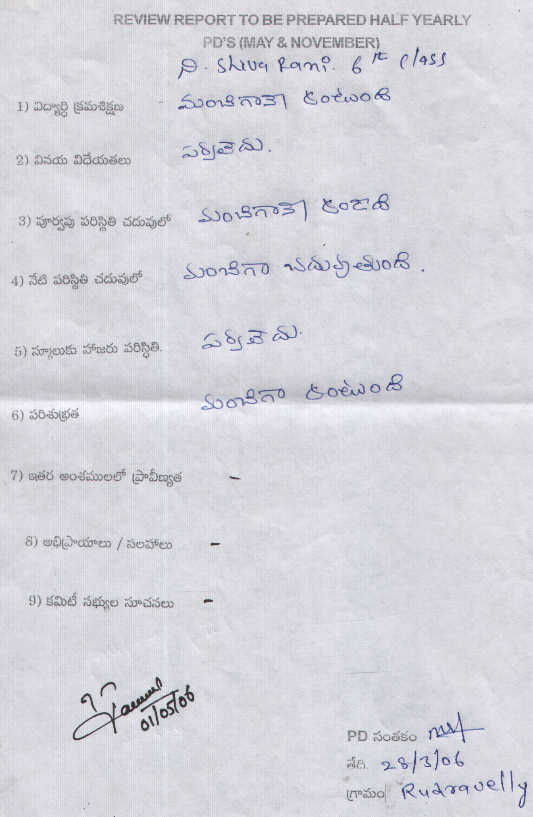 REVIEW REPORT TO BE PREPARED HALF YEARLY
PD'S (MAY & NOVEMBER)
D. Shiva Rani. 6th Class
1) విద్యార్థి క్రమశిక్షణ మంచిగానే ఉంటుంది
2) వినయ విధేయతలు పర్వలేదు.
3) పూర్వపు పరిస్థితి చదువులో మంచిగానే ఉండె
4) నేటి పరిస్థితి చదువులో మంచిగా చదువుతుంది.
5) స్కూలుకు హాజరు పరిస్థితి. పర్వలేదు.
6) పరిశుభ్రత మంచిగా ఉంటుంది
7) ఇతర అంశములలో ప్రావీణ్యత -
8) అభిప్రాయాలు / సలహాలు -
9) కమిటీ సభ్యుల సూచనలు -
01/05/06
PD సంతకం
తేది. 28/3/06
గ్రామం Rudravelly